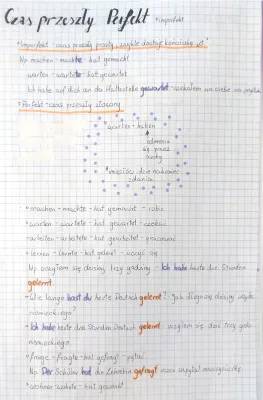 Czas przeszły Perfekt + imperfekt
* Imperfekt - czas przeszły prosty, zwykle dodaję końcówkę "te"
Np machen - machte - hat gemacht
warten - wartete - hat gewartet
Ich habe auf dich an der Haltestelle gewartet - czekałem na ciebie na
* Perfekt - czas przeszły złożony
haben
odmienia
się przez
osoby
zdania
* machen - machte - hat gemacht - robić
* warten - wartete - hat gewartet - czekać
* arbeiten - arbeitete - hat gearbeitet - pracować
* lernen - lernte - hat gelernt - uczyć się
Np uczyłem się dzisiaj trzy godziny - Ich habe heute drei Stunden
gelernt.
* Wie lange hast du heute Deutsch gelernt? - Jak długo się dzisiaj uczyłeś
niemieckiego?
* Ich habe heute drei Stunden Deutsch gelernt - uczyłem się dziś trzy godz.
niemieckiego.
* frage - fragte - hat gefragt - pytać
Np. Der Schüler hat die Lehrerin gefragt - uczeń zapytał nauczycielkę
* wohnen - wohnte - hat gewohnt